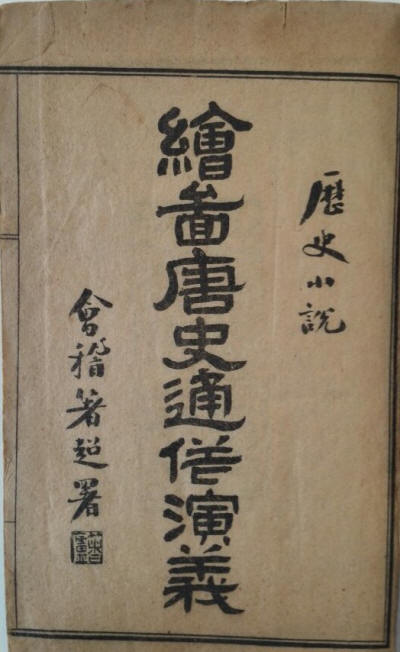 歷史小說
繪啚唐史通俗演義
會稽著超署